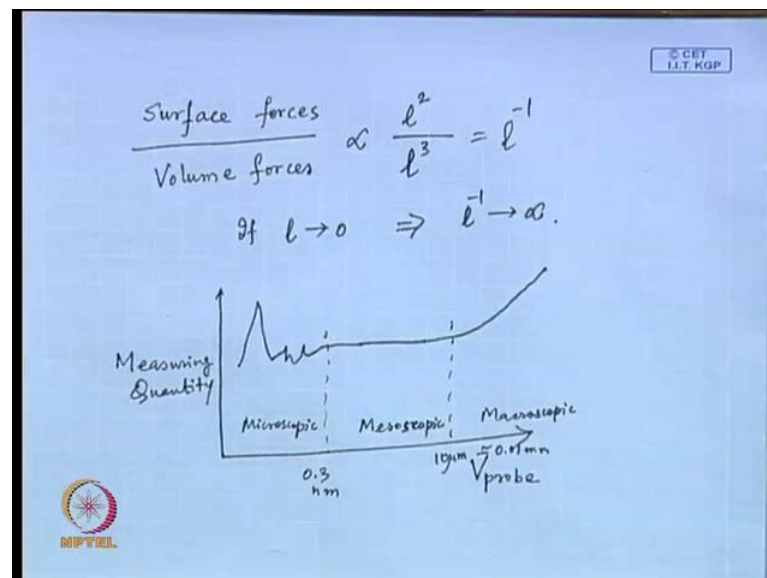 © CET
I.I.T. KGP
Surface forces / Volume forces ∝ l² / l³ = l⁻¹
If l → 0 ⇒ l⁻¹ → ∞.
Measuring
Quantity
Microscopic Mesoscopic Macroscopic
0.3
nm
10μm ≈ 0.01mm
Vprobe
NPTEL